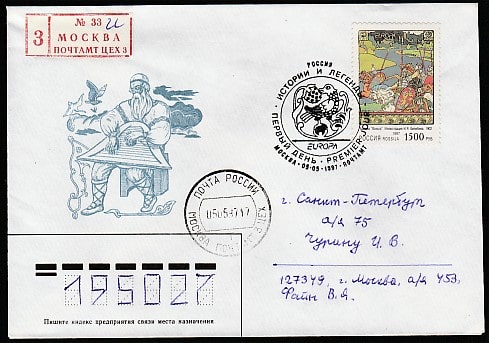 № 33 и
З МОСКВА
ПОЧТАМТ ЦЕХ 3
РОССИЯ
ИСТОРИИ И ЛЕГЕНДЫ
EUROPA
ПЕРВЫЙ ДЕНЬ · PREMIER JOUR
МОСКВА · 05·05·1997 · ПОЧТАМТ
1997
РОССИЯ ROSSIJA 1500 РУБ.
ПОЧТА РОССИИ
050597 17
МОСКВА
г. Санкт-Петербург
а/я 75
Чурину И. В.
127349, г. Москва, а/я 453,
Файн В.Я.
195027
Пишите индекс предприятия связи места назначения